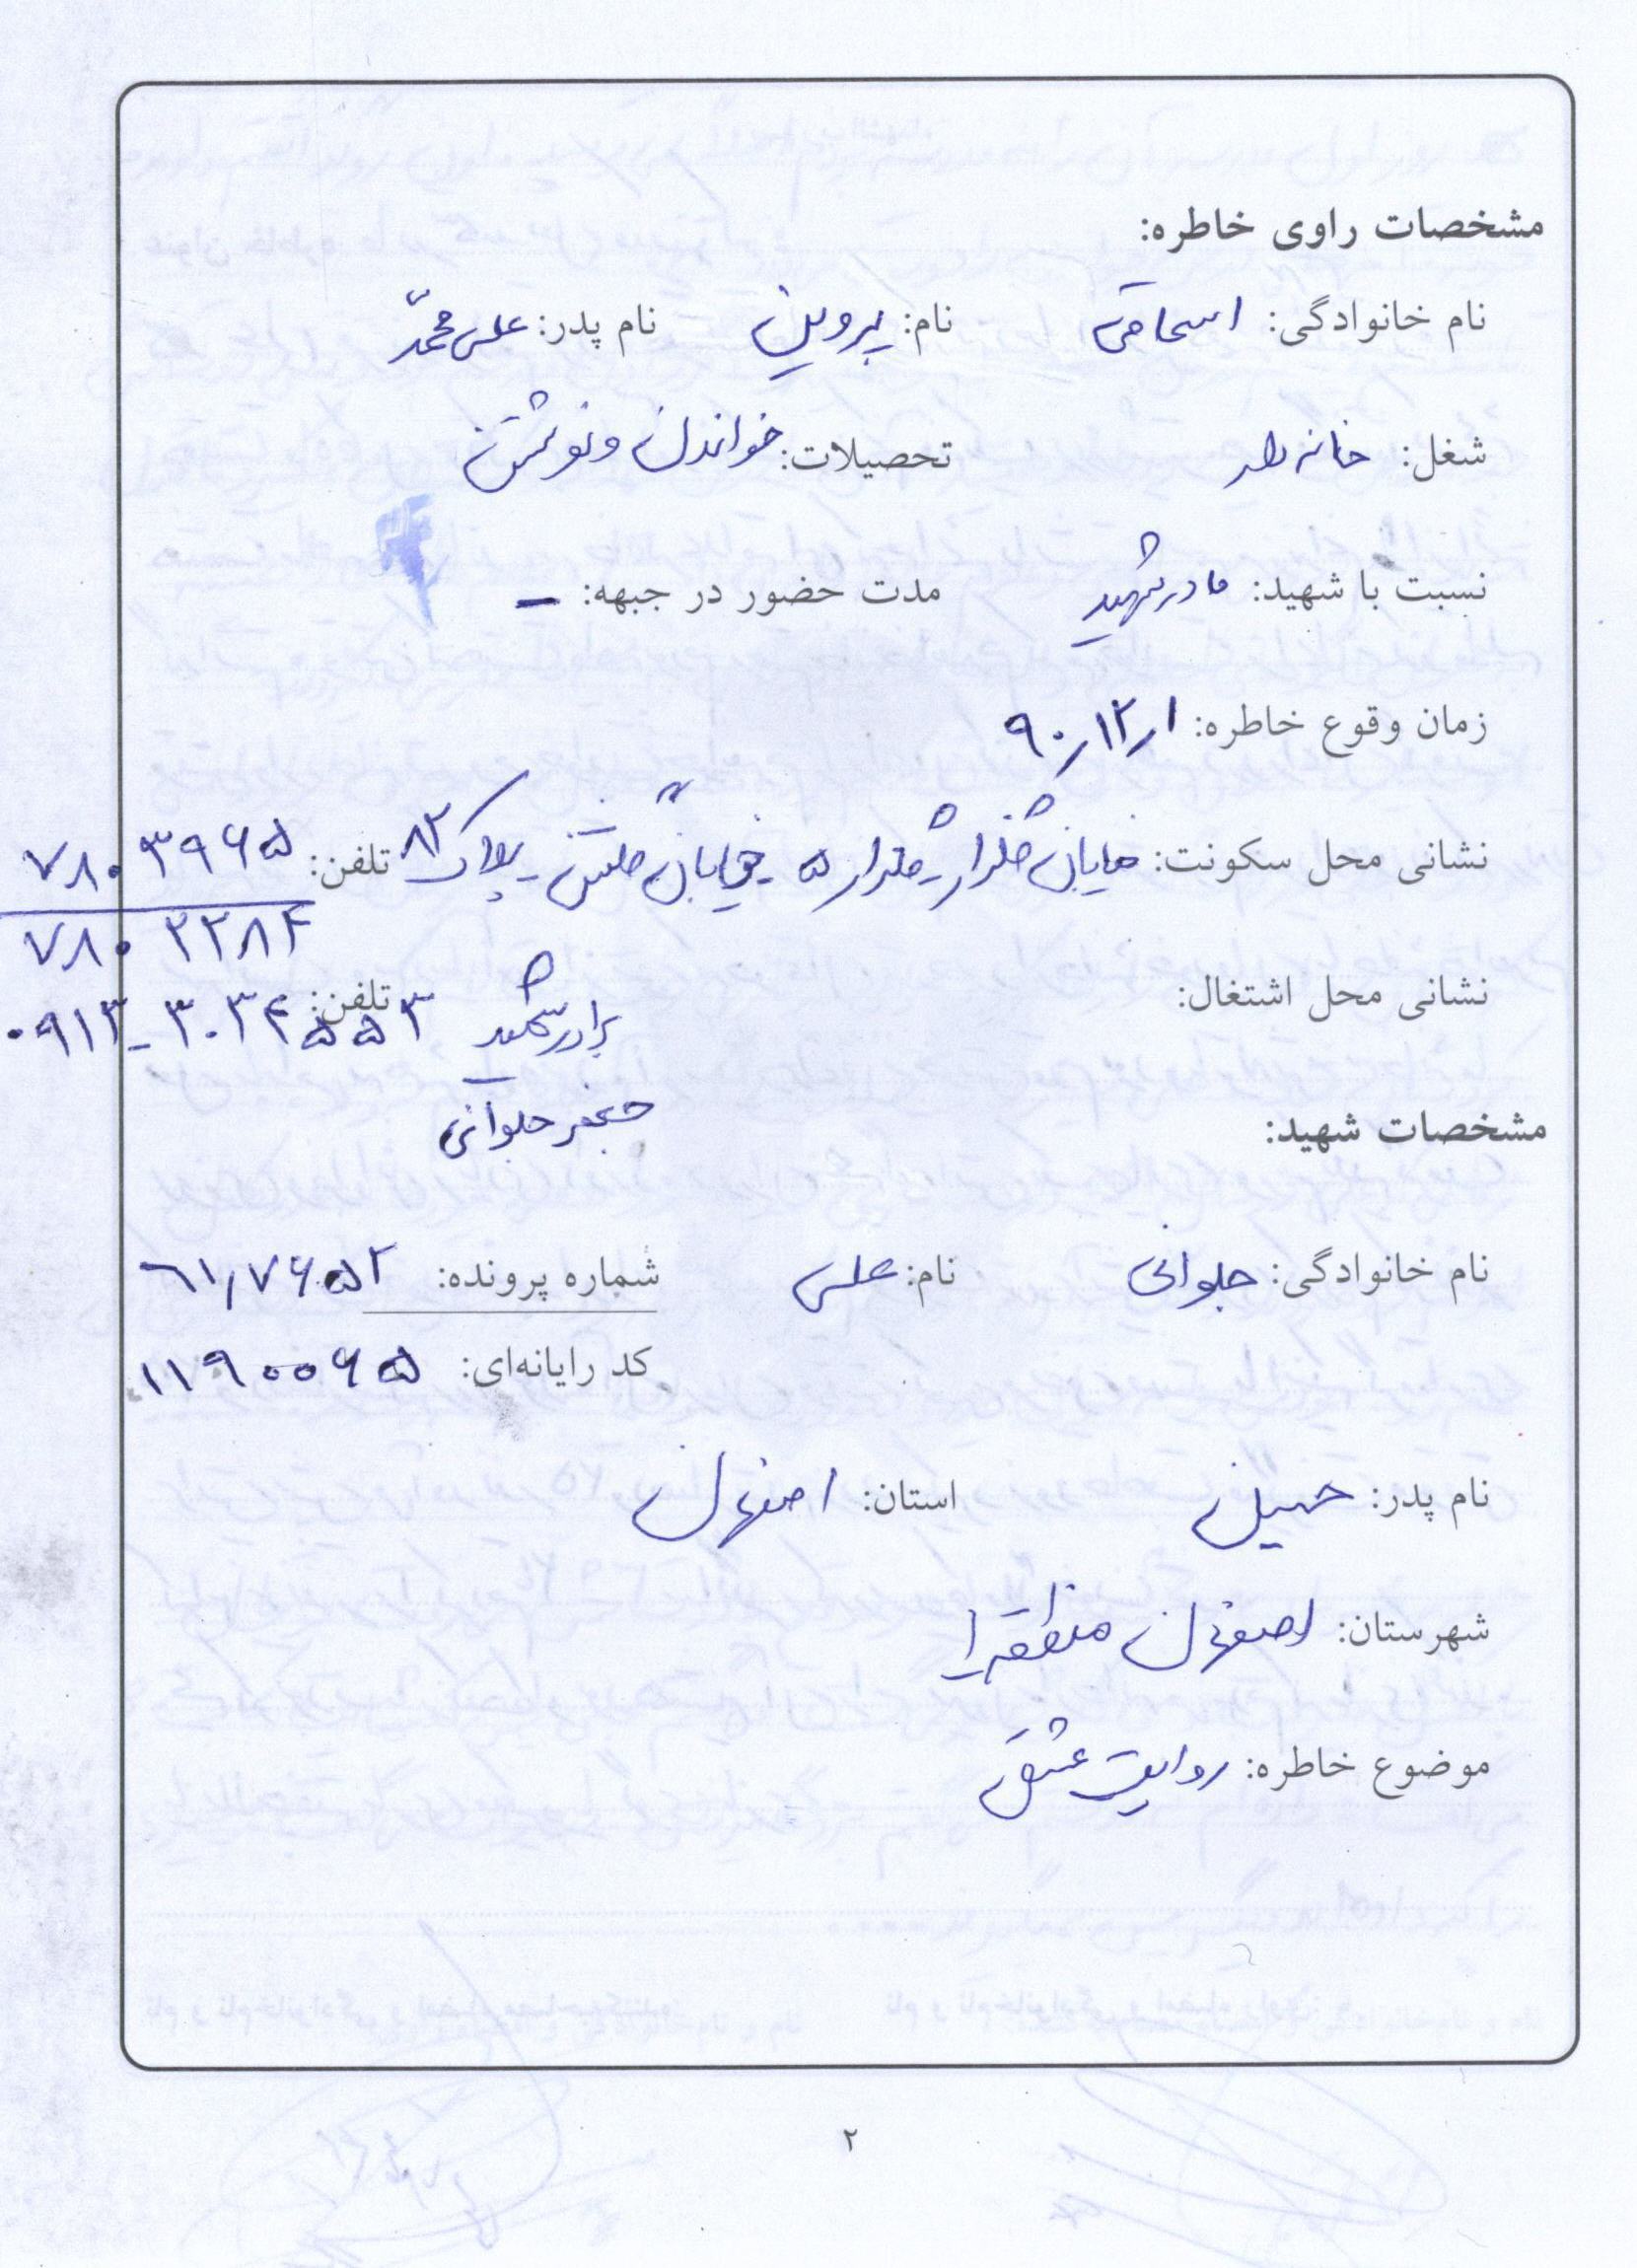 مشخصات راوی خاطره:
نام خانوادگی: اسحاقی نام: پروین نام پدر: علی محمّد
شغل: خانه دار تحصیلات: خواندن و نوشتن
نسبت با شهید: مادر شهید مدت حضور در جبهه: -
زمان وقوع خاطره: ۹۰/۱۲/۱
نشانی محل سکونت: خیابان خیابان پلاک ۸۲ تلفن: ۷۸۰۳۹۶۵
۷۸۰۲۲۸۴
نشانی محل اشتغال: برادر شهید تلفن: ۰۹۱۳-۳۰۳۴۵۵۳
جعفر جلوانی
مشخصات شهید:
نام خانوادگی: جلوانی نام: علی شماره پرونده: ۶۱/۷۶۵۲
کد رایانه‌ای: ۱۱۹۰۰۶۵
نام پدر: حسین استان: اصفهان
شهرستان: اصفهان منطقه ۱
موضوع خاطره: روایت عشق
۲